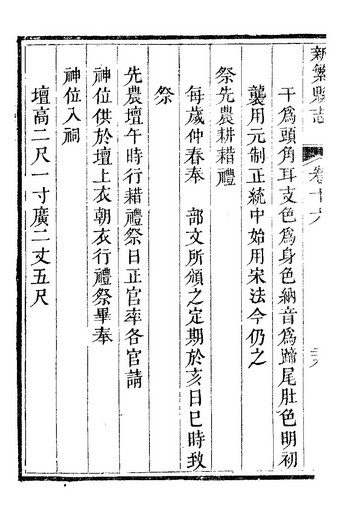 新繁縣志
卷十六
干爲頭角耳支色爲身色納音爲蹄尾肚色明初
襲用元制正統中始用宋法今仍之
祭先農耕耤禮
每歲仲春奉 部文所頒之定期於亥日巳時致
祭
先農壇午時行耤禮祭日正官率各官請
神位供於壇上衣朝衣行禮祭畢奉
神位入祠
壇高二尺一寸廣二丈五尺